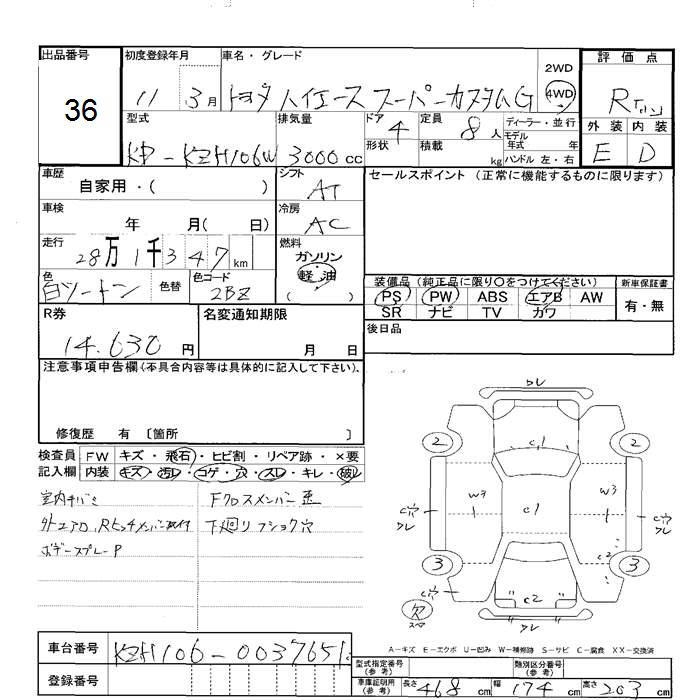 出品番号 初度登録年月 車名・グレード 2WD 評価点
36 11 3月 トヨタ ハイエース スーパーカスタムG 4WD R
型式 排気量 ドア 4 定員 8人 ディーラー・並行 外装 内装
モデル年式 年
KD-KZH106W 3000cc 形状 積載 kg ハンドル 左・右 E D
車歴 自家用・( ) シフト AT セールスポイント (正常に機能するものに限ります)
車検 年 月( 日) 冷房 AC
走行 28万1千347km 燃料 ガソリン 軽油 ( )
色 白ツートン 色替 色コード 2BZ 装備品 (純正品に限り○をつけてください) 新車保証書
PS PW ABS エアB AW 有・無
SR ナビ TV カワ
R券 名変通知期限 後日品
14,630円 月 日
注意事項申告欄(不具合内容等は具体的に記入して下さい)
修復歴 有 〔箇所 〕
検査員 FW キズ・飛石・ヒビ割・リペア跡・×要
記入欄 内装 キズ・汚レ・コゲ・穴・スレ・キレ・破レ
室内キバミ Fクロスメンバー歪
外エアロ、 下廻リフショク穴
ボデースプレーP
ワレ
2 C1 2
W3 C1 W3
C穴 ワレ C穴 ワレ
C2
3 3
C穴 C2 C穴
欠 スペア ワレ
A−キズ E−エクボ U−凹み W−補修跡 S−サビ C−腐食 XX−交換済
車台番号 KZH106-0037651
登録番号
型式指定番号(参考) 類別区分番号(参考)
車庫証明用(参考) 長さ 468cm 幅 174cm 高さ 203cm